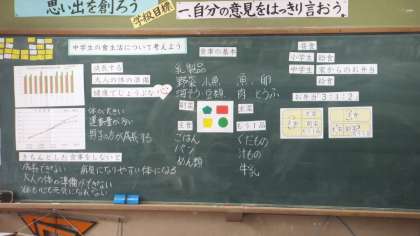 思い出を創ろう
学校目標
一、自分の意見をはっきり言おう。
中学生の食生活について考えよう
成長する
大人の体の準備
健康でしょうぶな
体が大きい
運動量が多い
きちんとした食事をしないと
成長できない
病気になりやすい体になる
大人の体の準備ができない
食事の基本
乳製品
野菜 小魚
海そう
副菜
主食
ごはん
パン
めん類
魚 卵
肉 とうふ
主菜
もう1品
くだもの
汁もの
牛乳
昼食
小学生 給食
中学生 家からのお弁当
給食
お弁当 3:1:2